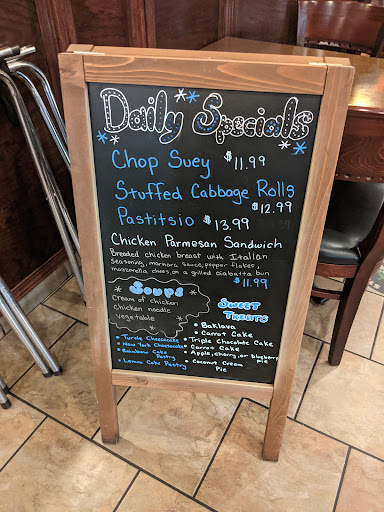 Daily Specials
Chop Suey $11.99
Stuffed Cabbage Rolls
$12.99
Pastitsio $13.99
Chicken Parmesan Sandwich
Breaded chicken breast with Italian
seasoning, marinara sauce, pepper flakes,
mozzarella cheese, on a grilled ciabatta bun
$11.99
Soups
Cream of chicken
chicken noodle
vegetable
Sweet
Treats
• Baklava
• Carrot Cake
• Triple Chocolate Cake
• Carrot Cake
• Apple, cherry, or blueberry
Pie
• Coconut Cream
Pie
• Turtle Cheesecake
• New York Cheesecake
• Rainbow Cake
Pastry
• Lemon Cake Pastry